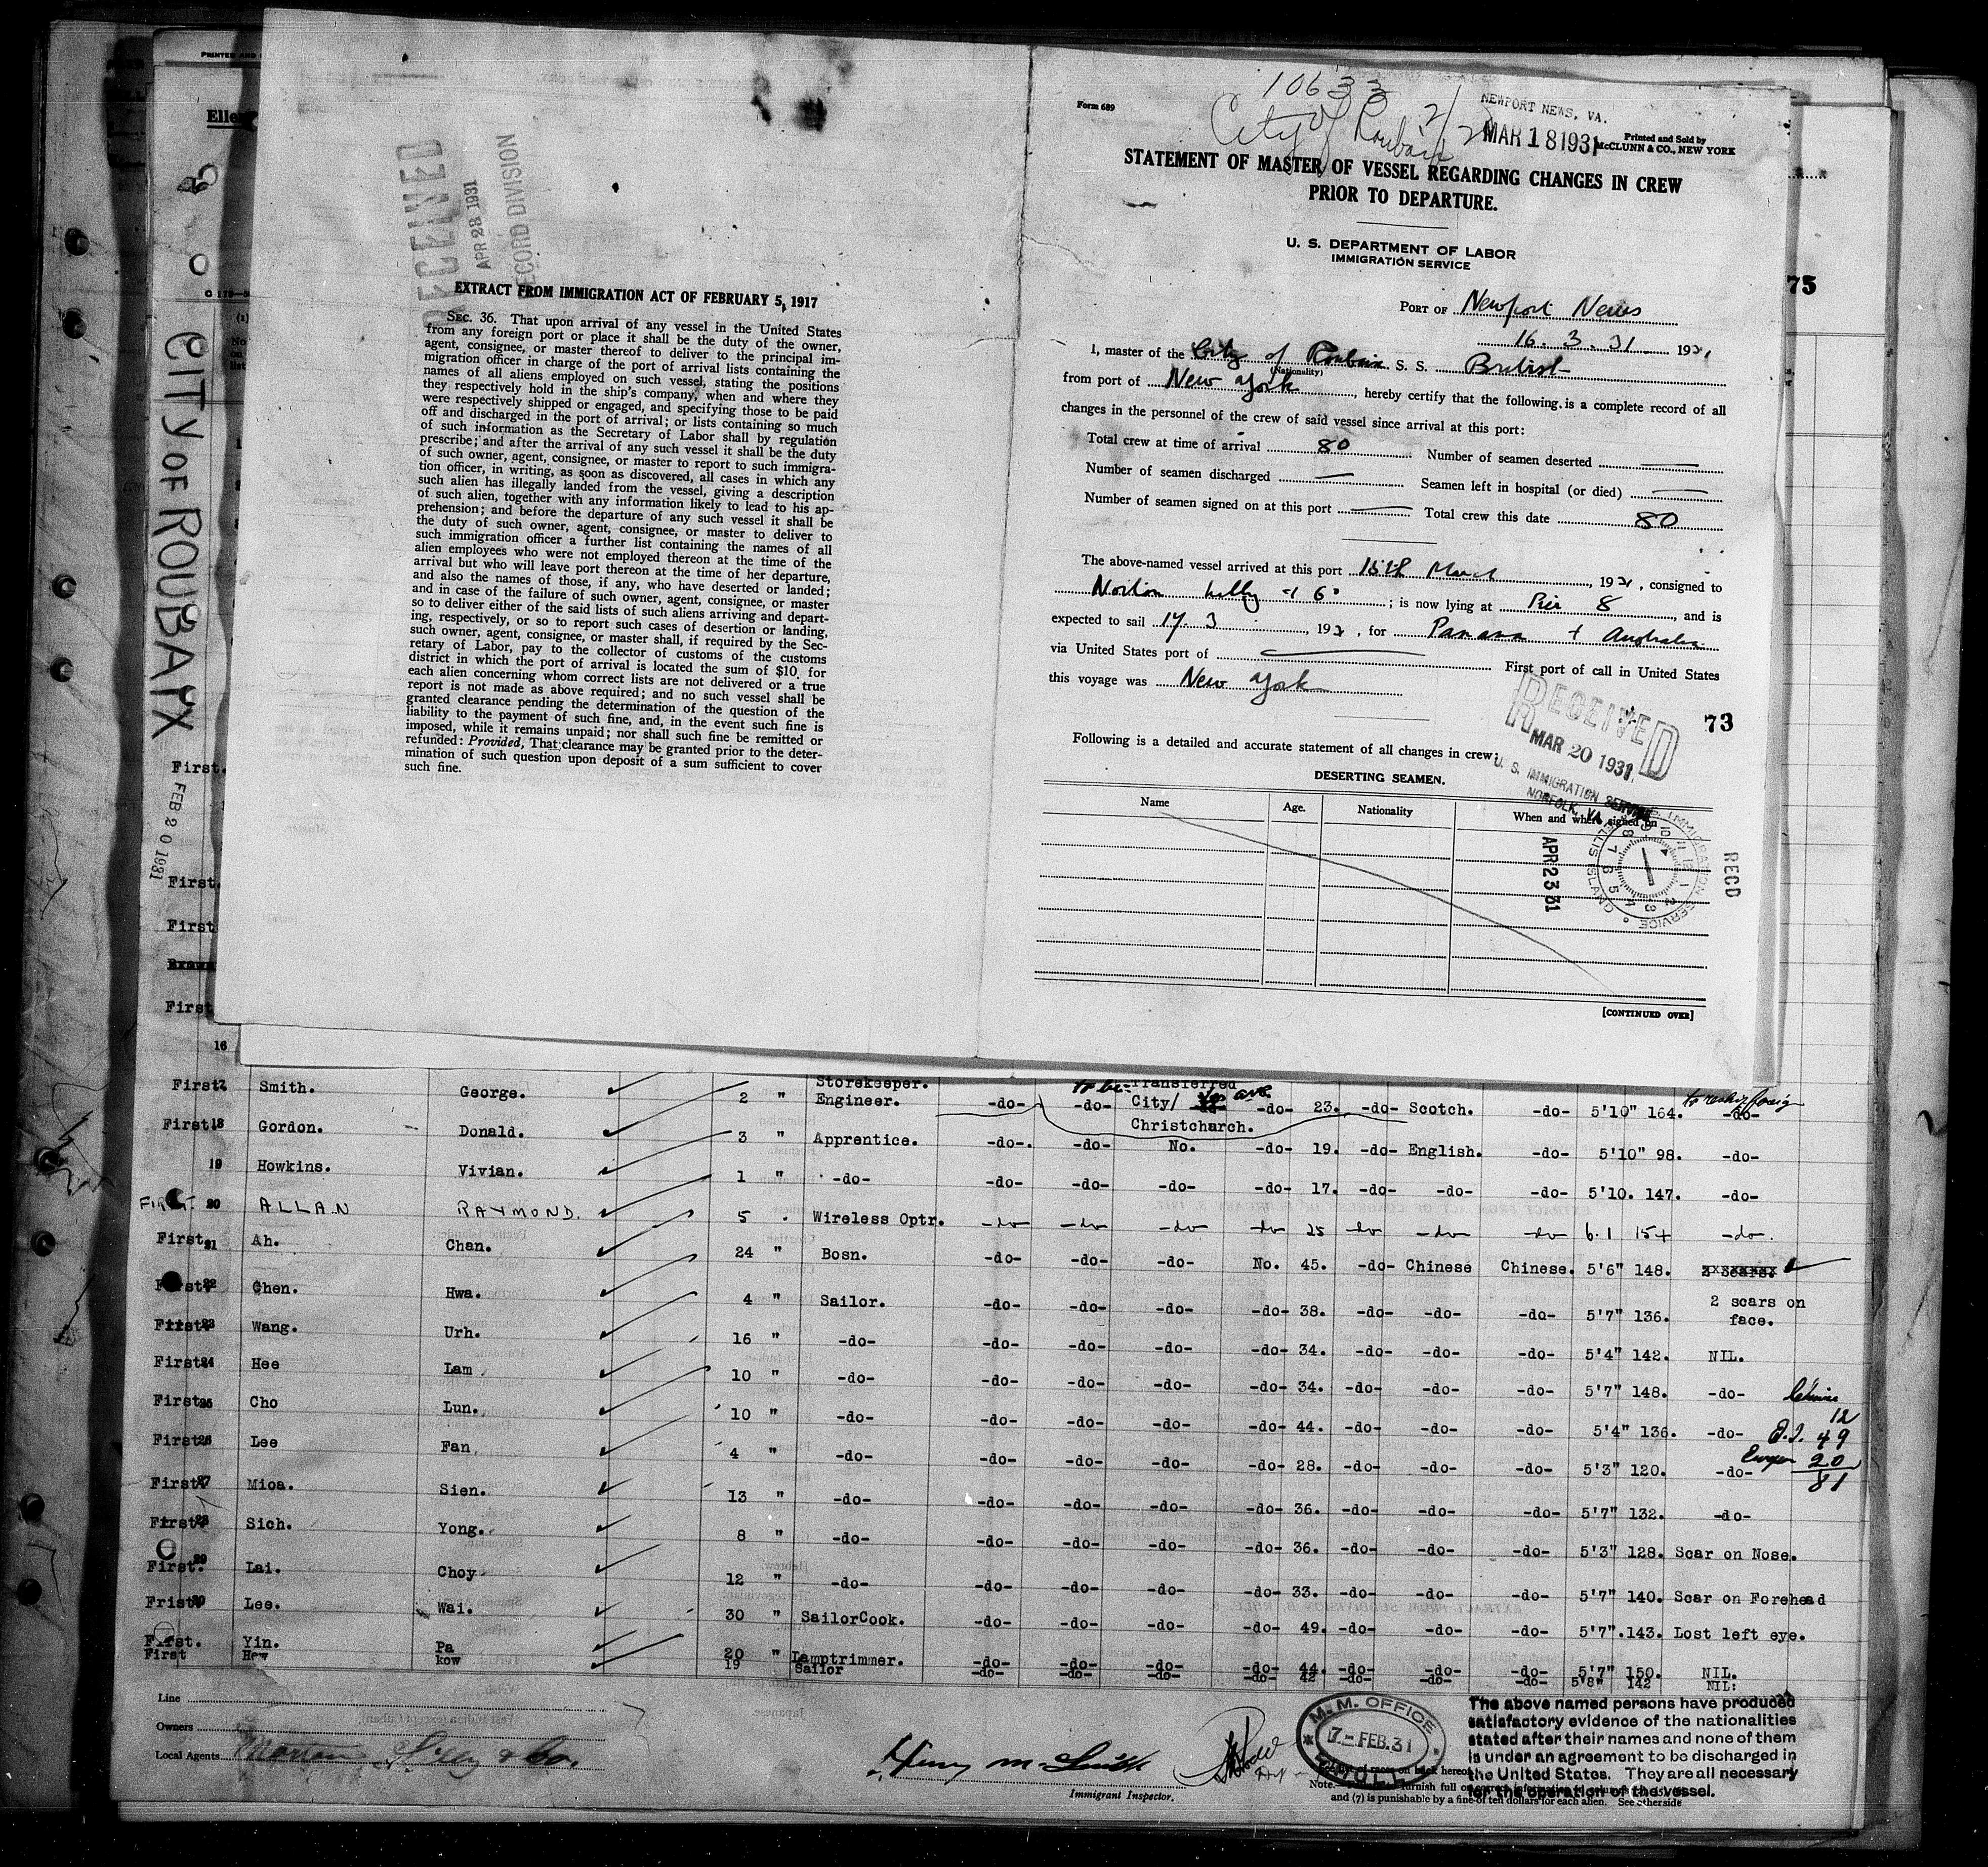 PRINTED AND
Elle
CITY OF ROUBAIX
FEB 20 1931
RECEIVED
APR 28 1931
RECORD DIVISION
EXTRACT FROM IMMIGRATION ACT OF FEBRUARY 5, 1917
SEC. 36. That upon arrival of any vessel in the United States
from any foreign port or place it shall be the duty of the owner,
agent, consignee, or master thereof to deliver to the principal im-
migration officer in charge of the port of arrival lists containing the
names of all aliens employed on such vessel, stating the positions
they respectively hold in the ship's company, when and where they
were respectively shipped or engaged, and specifying those to be paid
off and discharged in the port of arrival; or lists containing so much
of such information as the Secretary of Labor shall by regulation
prescribe; and after the arrival of any such vessel it shall be the duty
of such owner, agent, consignee, or master to report to such immigra-
tion officer, in writing, as soon as discovered, all cases in which any
such alien has illegally landed from the vessel, giving a description
of such alien, together with any information likely to lead to his ap-
prehension; and before the departure of any such vessel it shall be
the duty of such owner, agent, consignee, or master to deliver to
such immigration officer a further list containing the names of all
alien employees who were not employed thereon at the time of the
arrival but who will leave port thereon at the time of her departure,
and also the names of those, if any, who have deserted or landed;
and in case of the failure of such owner, agent, consignee, or master
so to deliver either of the said lists of such aliens arriving and depart-
ing, respectively, or so to report such cases of desertion or landing,
such owner, agent, consignee, or master shall, if required by the Sec-
retary of Labor, pay to the collector of customs of the customs
district in which the port of arrival is located the sum of $10 for
each alien concerning whom correct lists are not delivered or a true
report is not made as above required; and no such vessel shall be
granted clearance pending the determination of the question of the
liability to the payment of such fine, and, in the event such fine is
imposed, while it remains unpaid; nor shall such fine be remitted or
refunded: Provided, That clearance may be granted prior to the deter-
mination of such question upon deposit of a sum sufficient to cover
such fine.
10633
City of Roubaix
Form 689
NEWPORT NEWS, VA.
MAR 18 1931
Printed and Sold by
McCLUNN & CO., NEW YORK
STATEMENT OF MASTER OF VESSEL REGARDING CHANGES IN CREW
PRIOR TO DEPARTURE.
U. S. DEPARTMENT OF LABOR
IMMIGRATION SERVICE
75
PORT OF Newport News
16. 3. 31 1931
I, master of the City of Roubaix S. S. British
(Nationality)
from port of New York, hereby certify that the following is a complete record of all
changes in the personnel of the crew of said vessel since arrival at this port:
Total crew at time of arrival 80 Number of seamen deserted —
Number of seamen discharged — Seamen left in hospital (or died) —
Number of seamen signed on at this port — Total crew this date 80
The above-named vessel arrived at this port 15th March, 1931, consigned to
Norton Lilly & Co; is now lying at Pier 8, and is
expected to sail 17. 3, 1931, for Panama + Australia
via United States port of — First port of call in United States
this voyage was New York
73
RECEIVED
MAR 20 1931
U. S. IMMIGRATION SERVICE
NORFOLK, VA.
Following is a detailed and accurate statement of all changes in crew:
DESERTING SEAMEN.
Name Age. Nationality When and where signed on
APR 23 31
IMMIGRATION SERVICE
ELLIS ISLAND
RECD
[CONTINUED OVER]
First.
First.
First
First
16
Storekeeper. to be Transferred
First 17 Smith. George. 2 " Engineer. -do- -do- City/ -do- 23. -do- Scotch. -do- 5'10" 164. -do-
Christcharch.
First 18 Gordon. Donald. 3 " Apprentice. -do-. -do- No. -do- 19. -do- English. -do- 5'10" 98. -do-
19 Howkins. Vivian. 1 " -do- -do- -do- -do- -do- 17. -do- -do- -do- 5'10. 147. -do-
FIRST 20 ALLAN RAYMOND. 5 Wireless Optr. -do- -do- -do- -do- 25 -do- -do- -do- 6.1 154 -do-
First 21 Ah. Chan. 24 " Bosn. -do- -do- -do- No. 45. -do- Chinese Chinese. 5'6" 148.
First 22 Chen. Hwa. 4 " Sailor. -do- -do- -do- -do- 38. -do- -do- -do- 5'7" 136. 2 scars on
face.
First 23 Wang. Urh. 16 " -do- -do- -do- -do- -do- 34. -do- -do- -do- 5'4" 142. NIL.
First 24 Hee Lam 10 " -do- -do- -do- -do- -do- 34. -do- -do- -do- 5'7" 148. -do-
First 25 Cho Lun. 10 " -do- -do- -do- -do- -do- 44. -do- -do- -do- 5'4" 136. -do-
First 26 Lee Fan 4 " -do- -do- -do- -do- -do- 28. -do- -do- -do- 5'3" 120. -do-
12
49
20
81
First 27 Mioa. Sien. 13 " -do- -do- -do- -do- -do- 36. -do- -do- -do- 5'7" 132. -do-
First 28 Sich. Yong. 8 " -do- -do- -do- -do- -do- 36. -do- -do- -do- 5'3" 128. Scar on Nose.
First. 29 Lai. Choy 12 " -do- -do- -do- -do- -do- 33. -do- -do- -do- 5'7" 140. Scar on Forehead
Frist 30 Lee. Wai. 30 " SailorCook. -do- -do- -do- -do- 49. -do- -do- -do- 5'7". 143. Lost left eye.
First. Yin. Pa 20 " Lamptrimmer. -do- -do- -do- -do- 44. -do- -do- -do- 5'7" 150. NIL.
First How kow 19 Sailor -do- -do- -do- -do- 42 -do- -do- -do- 5'8" 142 NIL:
Line
Owners
Local Agents Norton Lilly & Co.
Henry M. Smith
Immigrant Inspector.
M. M. OFFICE
7-FEB.31
The above named persons have produced
satisfactory evidence of the nationalities
stated after their names and none of them
is under an agreement to be discharged in
the United States. They are all necessary
for the operation of the vessel.
and (7) is punishable by a fine of ten dollars for each alien. See otherside